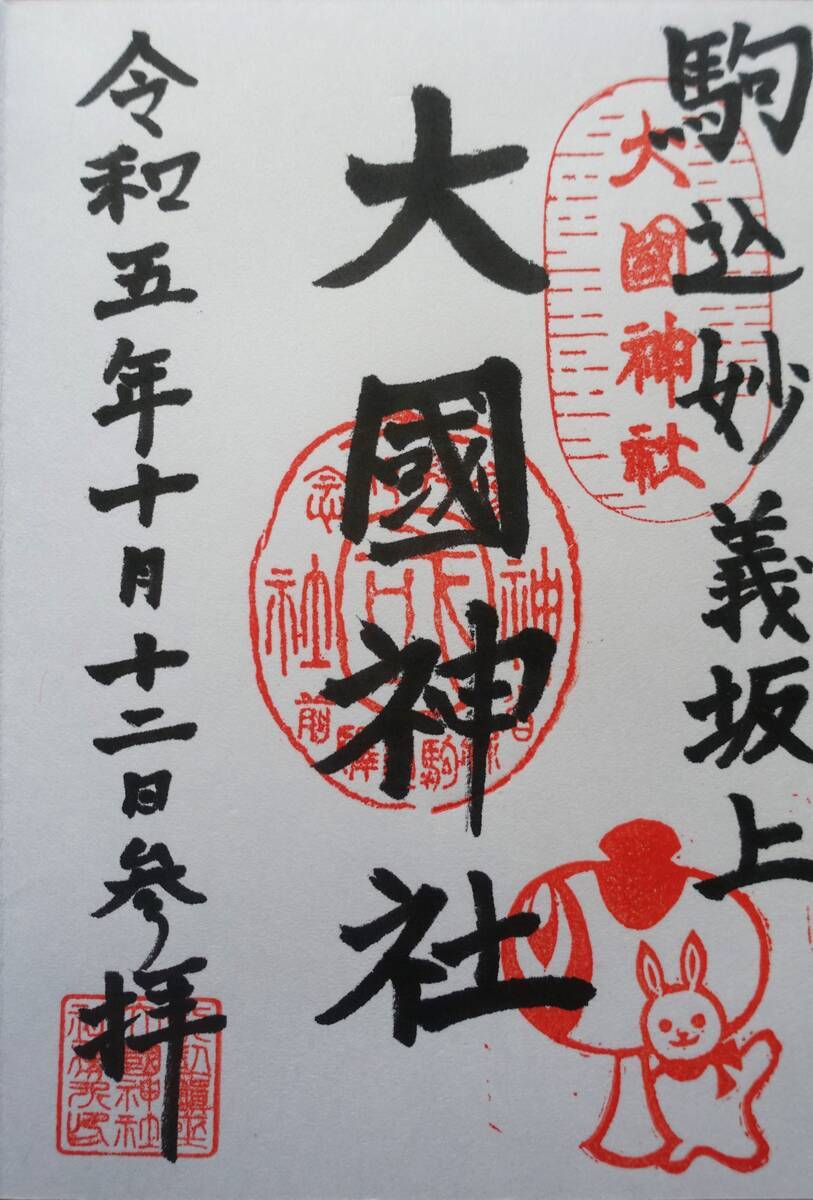 駒込妙義坂上
大國神社
大國神社
神社
念
駒
前
令和五年十月十二日參拝